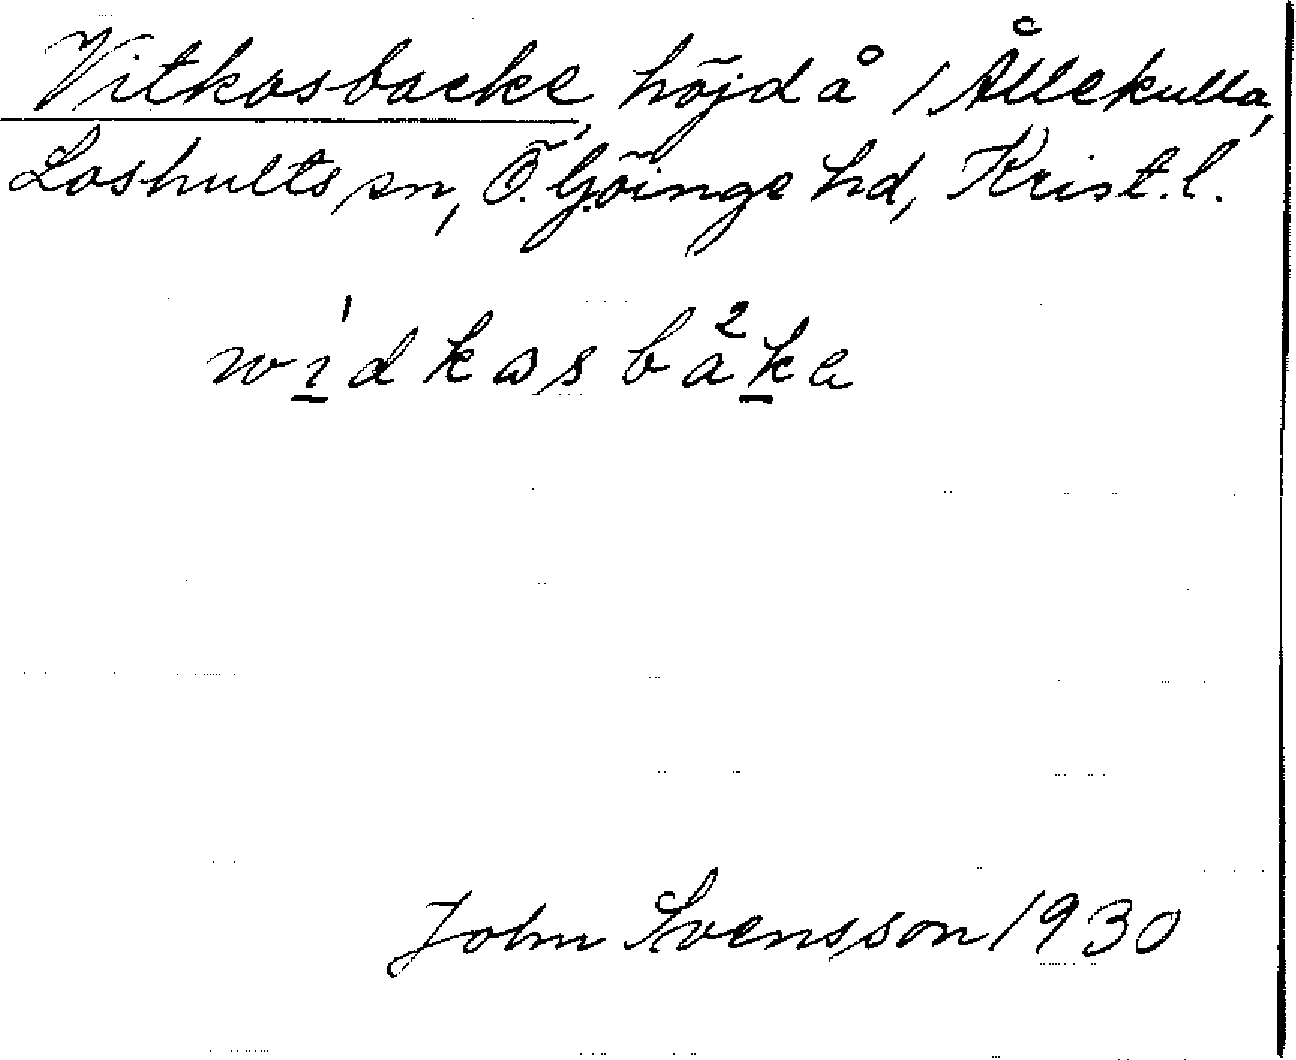 Vitkasbacke, höjd å 1 Ållekulla,
Loshults sn, Ö. Göinge hd, Krist. l.
wıdkasbaka
John Svensson 1930